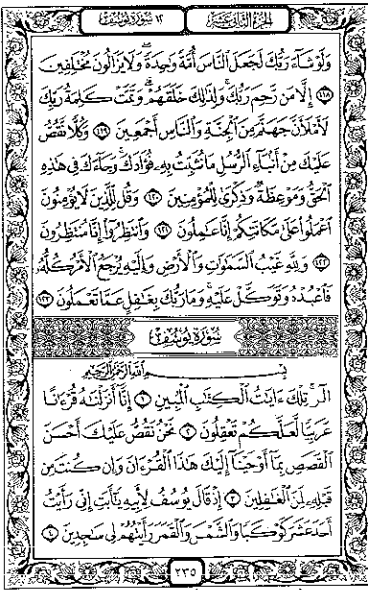 الجزء الثاني عشر
١٢ سورة يوسف
وَلَوْ شَآءَ رَبُّكَ لَجَعَلَ ٱلنَّاسَ أُمَّةً وَٰحِدَةً وَلَا يَزَالُونَ مُخْتَلِفِينَ
١١٨ إِلَّا مَن رَّحِمَ رَبُّكَ وَلِذَٰلِكَ خَلَقَهُمْ وَتَمَّتْ كَلِمَةُ رَبِّكَ
لَأَمْلَأَنَّ جَهَنَّمَ مِنَ ٱلْجِنَّةِ وَٱلنَّاسِ أَجْمَعِينَ ١١٩ وَكُلًّا نَّقُصُّ
عَلَيْكَ مِنْ أَنۢبَآءِ ٱلرُّسُلِ مَا نُثَبِّتُ بِهِۦ فُؤَادَكَ وَجَآءَكَ فِى هَٰذِهِ
ٱلْحَقُّ وَمَوْعِظَةٌ وَذِكْرَىٰ لِلْمُؤْمِنِينَ ١٢٠ وَقُل لِّلَّذِينَ لَا يُؤْمِنُونَ
ٱعْمَلُوا۟ عَلَىٰ مَكَانَتِكُمْ إِنَّا عَٰمِلُونَ ١٢١ وَٱنتَظِرُوٓا۟ إِنَّا مُنتَظِرُونَ
١٢٢ وَلِلَّهِ غَيْبُ ٱلسَّمَٰوَٰتِ وَٱلْأَرْضِ وَإِلَيْهِ يُرْجَعُ ٱلْأَمْرُ كُلُّهُۥ
فَٱعْبُدْهُ وَتَوَكَّلْ عَلَيْهِ وَمَا رَبُّكَ بِغَٰفِلٍ عَمَّا تَعْمَلُونَ ١٢٣
سُورَةُ يُوسُفَ
بِسْمِ ٱللَّهِ ٱلرَّحْمَٰنِ ٱلرَّحِيمِ
الٓر تِلْكَ ءَايَٰتُ ٱلْكِتَٰبِ ٱلْمُبِينِ ١ إِنَّآ أَنزَلْنَٰهُ قُرْءَٰنًا
عَرَبِيًّا لَّعَلَّكُمْ تَعْقِلُونَ ٢ نَحْنُ نَقُصُّ عَلَيْكَ أَحْسَنَ
ٱلْقَصَصِ بِمَآ أَوْحَيْنَآ إِلَيْكَ هَٰذَا ٱلْقُرْءَانَ وَإِن كُنتَ مِن
قَبْلِهِۦ لَمِنَ ٱلْغَٰفِلِينَ ٣ إِذْ قَالَ يُوسُفُ لِأَبِيهِ يَٰٓأَبَتِ إِنِّى رَأَيْتُ
أَحَدَ عَشَرَ كَوْكَبًا وَٱلشَّمْسَ وَٱلْقَمَرَ رَأَيْتُهُمْ لِى سَٰجِدِينَ ٤
٢٣٥